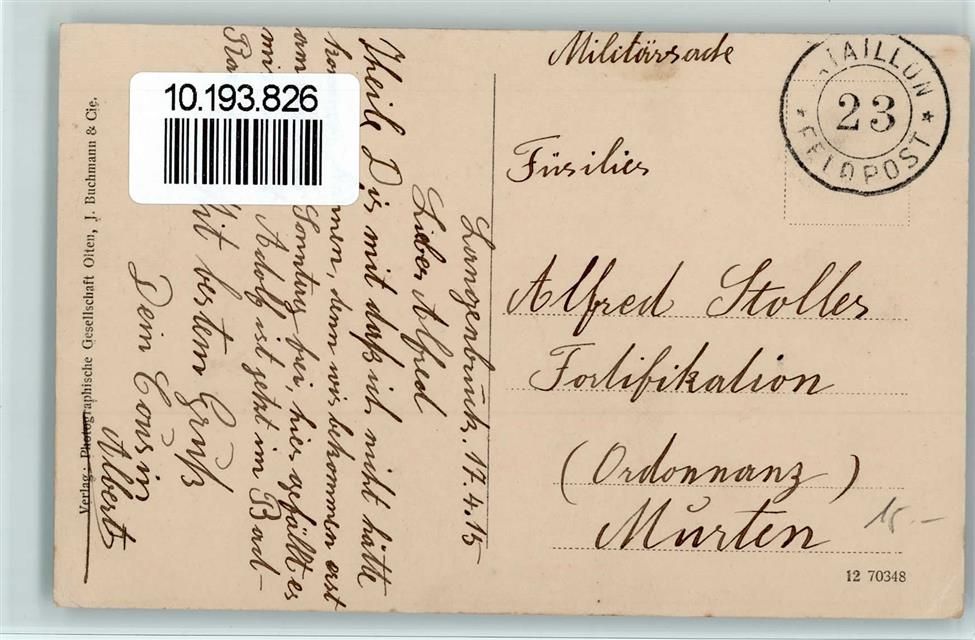 Militärsache
BATAILLON
23
* FELDPOST *
Füsilier
Alfred Stoller
Fortifikation
(Ordonnanz)
Murten
15.-
12 70348
10.193.826
Langenbruck. 17.4.15
Lieber Alfred
Theile Dir mit daß ich nicht hätte
kommen, denn wir bekommen erst
am Sonntag frei, hier gefällt es
mi Adolf ist jetzt im Bad-
Mit bestem Gruß
Dein Cousin
Albert
Verlag: Photographische Gesellschaft Olten, J. Buchmann & Cie.